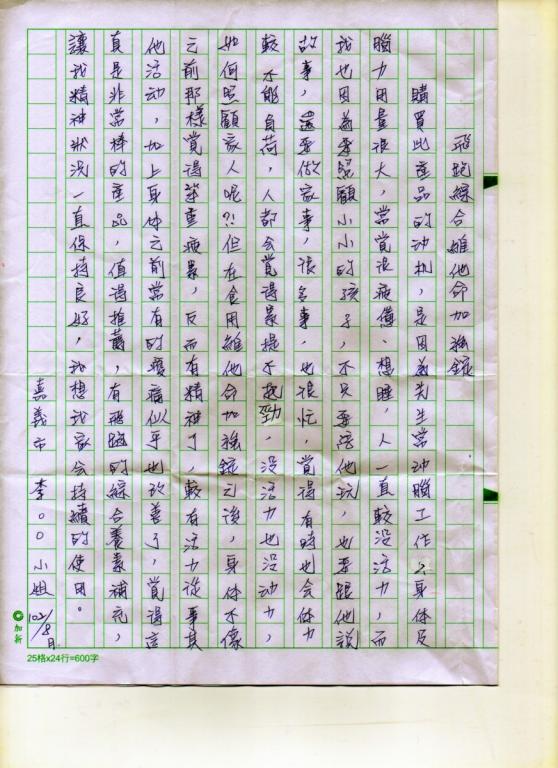 飛跑綜合維他命加強錠
購買此產品的动机，是因為先生常动腦工作，身体及
腦力用量很大，常覺很疲憊、想睡，人一直較沒活力，而
我也因為要照顧小小的孩子，不只要陪他玩，也要跟他說
故事，還要做家事，很多事，也很忙，覺得有時也会体力
較不能負荷，人都会覺得累提不起勁，沒活力也沒动力，
如何照顧家人呢?!但在食用維他命加強錠之後，身体不像
之前那樣覺得笨重疲累，反而有精神了，較有活力從事其
他活动，加上身体之前常有的痠痛似乎也改善了，覺得這
真是非常棒的產品，值得推薦，有飛跑的綜合養素補充，
讓我精神狀況一直保持良好，我想我家会持續的使用。
嘉義市 李○○小姐
102/8月
加新
25格x24行=600字